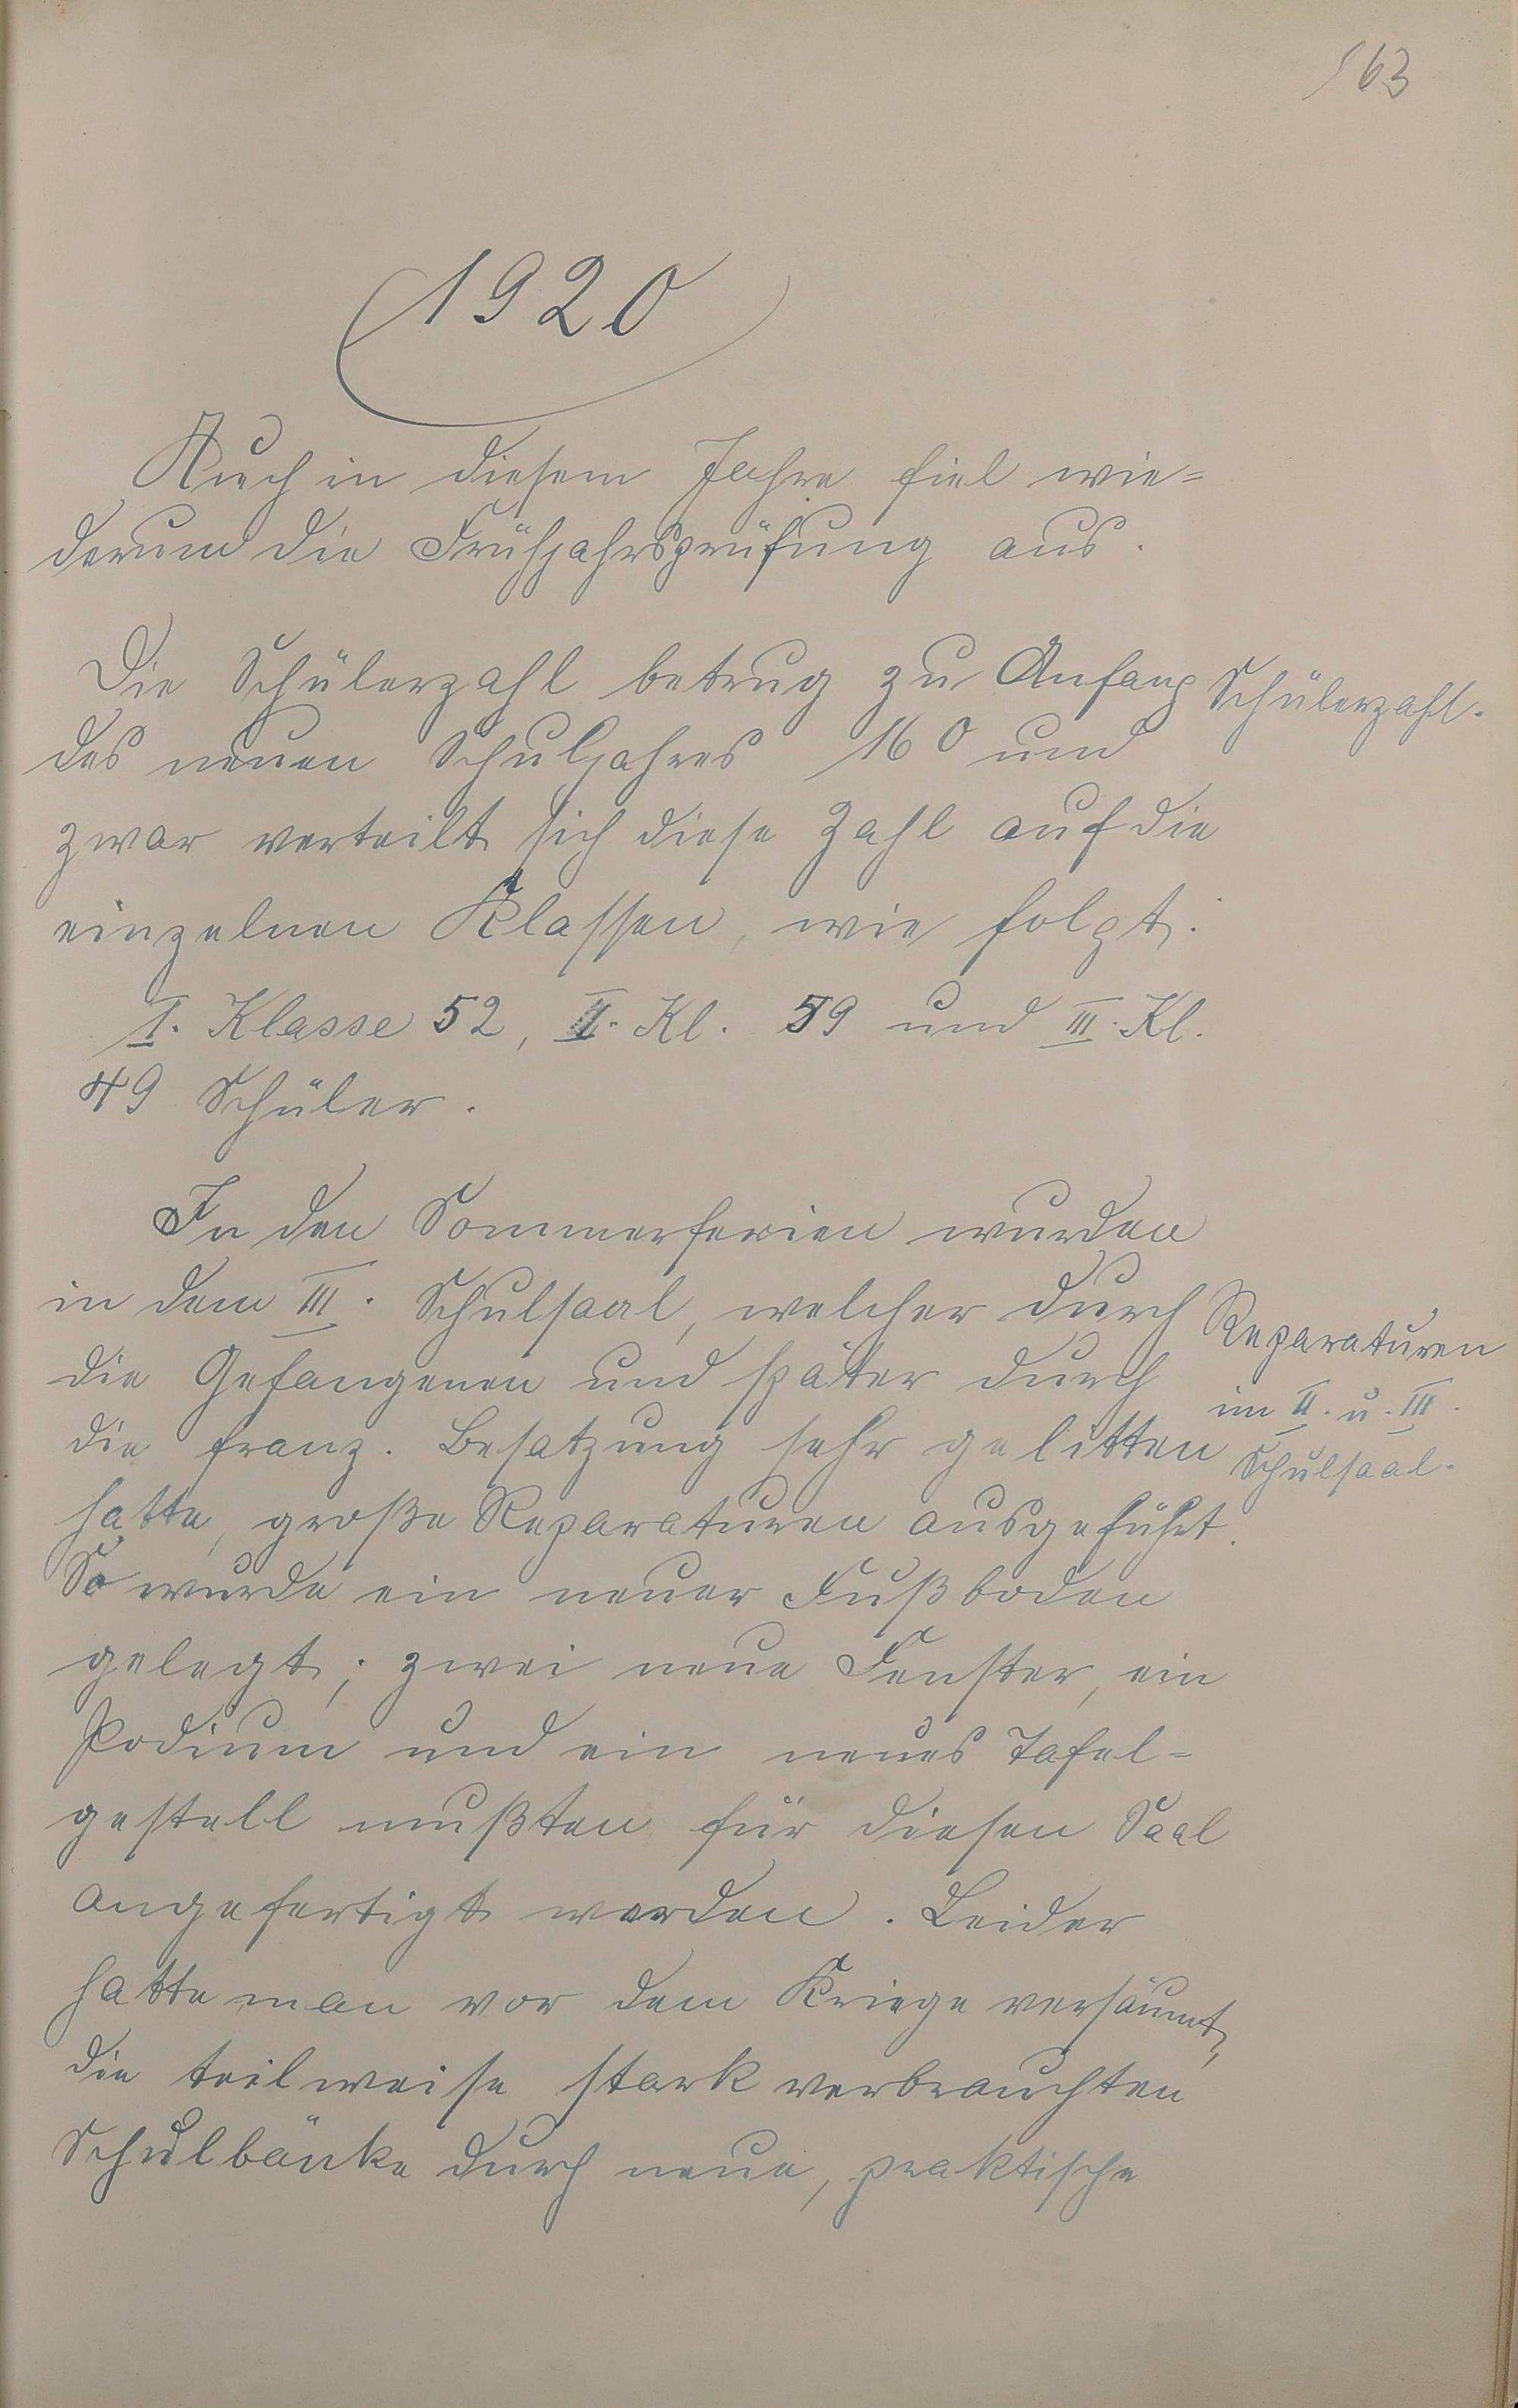 163
1920
Auch in diesem Jahre fiel wie=
derum die Frühjahrsprüfung aus.
Die Schülerzahl betrug zu Anfang
Schülerzahl.
des neuen Schuljahres 160 und
zwar verteilt sich diese Zahl auf die
einzelnen Klassen, wie folgt:
I. Klasse 52, II. Kl. 59 und III. Kl.
49 Schüler.
In den Sommerferien wurden
in dem III. Schulsaal, welcher durch
die Gefangenen und später durch
die franz. Besatzung sehr gelitten
hatte, große Reparaturen ausgeführt.
Reparaturen
im II. u. III.
Schulsaal.
So wurde ein neuer Fußboden
gelegt; zwei neue Fenster, ein
Podium und ein neues Tafel=
gestell mußten für diesen Saal
angefertigt werden. Leider
hatte man vor dem Kriege versäumt,
die teilweise stark verbrauchten
Schulbänke durch neue, praktische